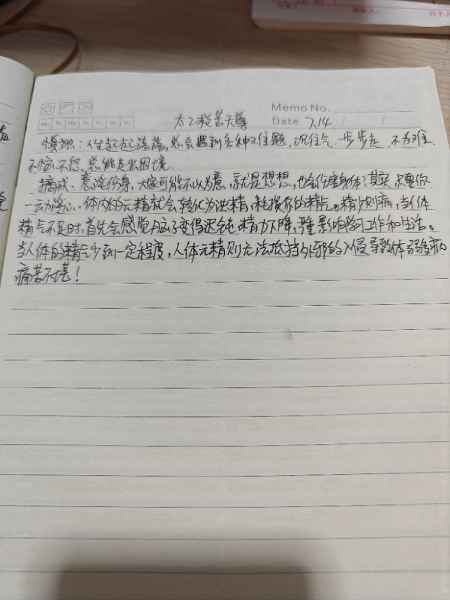 太乙救苦天尊
Memo No.
Date 7.14 / /
情执：人生起起落落，总会遇到各种难题，沉住气，一步步走，不为难
不惧不怒，总能走出困境
戒：意淫伤身，大家可能不以为意，就是想想，也会伤害身体；其实只要你
一动念，体内的元精就会转化为浊精，耗损你的精元。精少则病，当人体
精气不足时，首先会感觉脑子变得迟钝，精力下降，严重影响学习工作和生活。
当人体的精气少到一定程度，人体元精则无法抵挡外邪的入侵导致体弱多病
痛苦不堪！